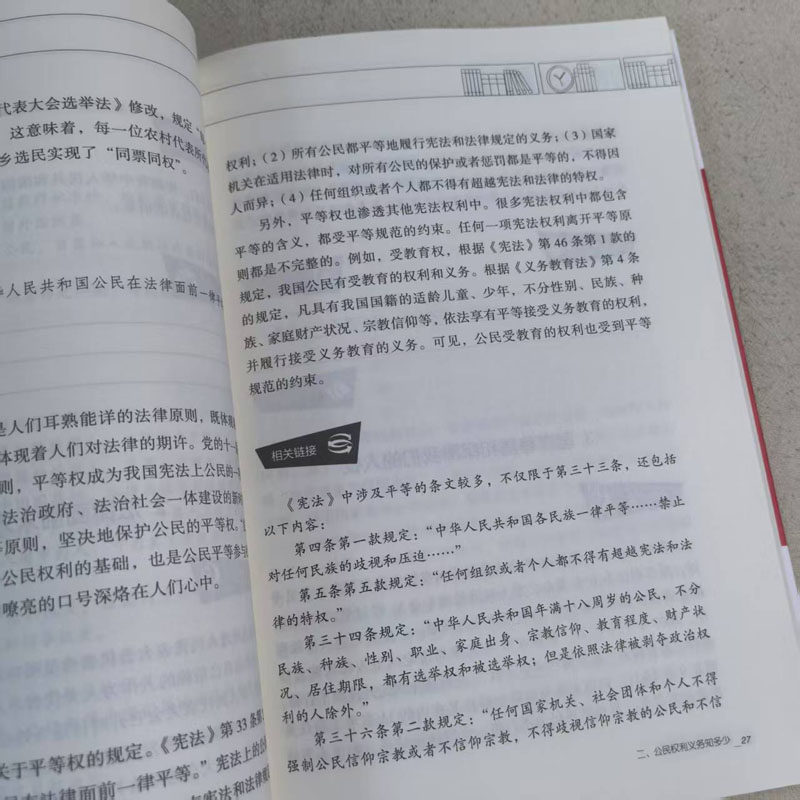 代表大会选举法》修改，规定
这意味着，每一位农村代表所
乡选民实现了“同票同权”。
人民共和国公民在法律面前一律平
是人们耳熟能详的法律原则，既体
体现着人们对法律的期许。党的十
则，平等权成为我国宪法上公民的
法治政府、法治社会一体建设的新
原则，坚决地保护公民的平等权。
公民权利的基础，也是公民平等参
嘹亮的口号深烙在人们心中。
关于平等权的规定。《宪法》第33条
在法律面前一律平等。”宪法上的
宪法和法律
权利；（2）所有公民都平等地履行宪法和法律规定的义务；（3）国家
机关在适用法律时，对所有公民的保护或者惩罚都是平等的，不得因
人而异；（4）任何组织或者个人都不得有超越宪法和法律的特权。
另外，平等权也渗透其他宪法权利中。很多宪法权利中都包含
平等的含义，都受平等规范的约束。任何一项宪法权利离开平等原
则都是不完整的。例如，受教育权，根据《宪法》第46条第1款的
规定，我国公民有受教育的权利和义务。根据《义务教育法》第4条
的规定，凡具有我国国籍的适龄儿童、少年，不分性别、民族、种
族、家庭财产状况、宗教信仰等，依法享有平等接受义务教育的权利，
并履行接受义务教育的义务。可见，公民受教育的权利也受到平等
规范的约束。
相关链接
《宪法》中涉及平等的条文较多，不仅限于第三十三条，还包括
以下内容：
第四条第一款规定：“中华人民共和国各民族一律平等……禁止
对任何民族的歧视和压迫……”
第五条第五款规定：“任何组织或者个人都不得有超越宪法和法
律的特权。”
第三十四条规定：“中华人民共和国年满十八周岁的公民，不分
民族、种族、性别、职业、家庭出身、宗教信仰、教育程度、财产状
况、居住期限，都有选举权和被选举权；但是依照法律被剥夺政治权
利的人除外。”
第三十六条第二款规定：“任何国家机关、社会团体和个人不得
强制公民信仰宗教或者不信仰宗教，不得歧视信仰宗教的公民和不信
二、公民权利义务知多少 27